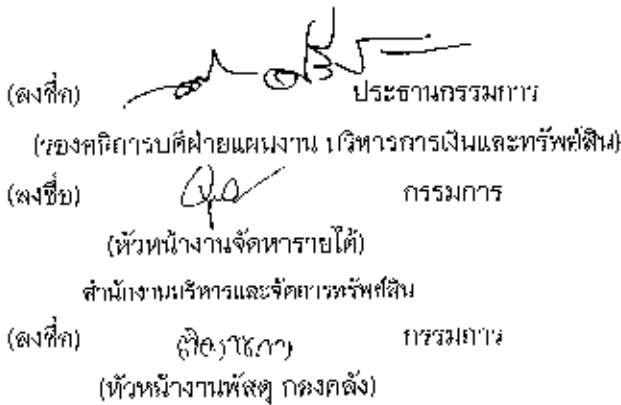 (ลงชื่อ) ประธานกรรมการ
(รองอธิการบดีฝ่ายแผนงาน บริหารการเงินและทรัพย์สิน)
(ลงชื่อ) กรรมการ
(หัวหน้างานจัดหารายได้)
สำนักงานบริหารและจัดการทรัพย์สิน
(ลงชื่อ) กรรมการ
(หัวหน้างานพัสดุ กองคลัง)